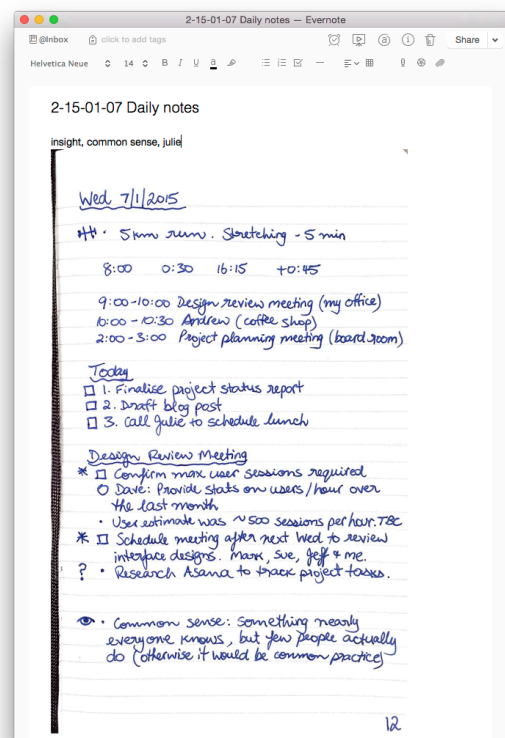 2-15-01-07 Daily notes — Evernote
@Inbox click to add tags Share
Helvetica Neue 14 B I U a
2-15-01-07 Daily notes
insight, common sense, julie
Wed 7/1/2015
5km run. Stretching - 5 min
8:00 0:30 16:15 +0:45
9:00-10:00 Design review meeting (my office)
10:00-10:30 Andrew (coffee shop)
2:00-3:00 Project planning meeting (board room)
Today
1. Finalise project status report
2. Draft blog post
3. Call Julie to schedule lunch
Design Review Meeting
* Confirm max user sessions required
Dave: Provide stats on users/hour over
the last month
• User estimate was ~500 sessions per hour. TBC
* Schedule meeting after next Wed to review
interface designs. Mark, Sue, Jeff + me.
? • Research Asana to track project tasks.
• Common sense: Something nearly
everyone knows, but few people actually
do (otherwise it would be common practice)
12